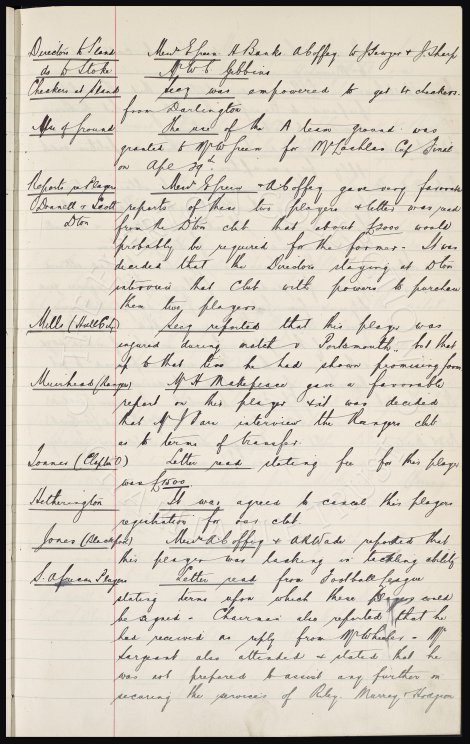 Directors to Stand Messrs E Green H Banks A Coffey W J Sawyer & J Sharp
do to Stoke Mr W C Gibbins
Checkers at Stand Secy was empowered to get 10 checkers
from Darlington
Use of Ground The use of the A team ground was
granted to Mr W Green for McLachlan Cup Final
on Apl 29th
Reports re Players Messrs E Green & A Coffey gave very favorable
Donnell & Scott reports of these two players & letter was read
Dton from the Dton club that about £3000 would
probably be required for the former - It was
decided that the Directors staying at Dton
interview that Club with powers to purchase
these two players
Mills (Hull City) Secy reported that this player was
injured during match v Portsmouth, but that
up to that time he had shown promising form
Muirhead (Rangers) Mr H Makepeace gave a favorable
report on this player & it was decided
that Mr interview the Rangers club
as to terms of transfer.
(Clapton O) Letter read stating fee for this player
was £1500
Hetherington It was agreed to cancel this players
registration for our club.
Jones (Blackpool) Messrs A Coffey & A R Wade reported that
this player was lacking in tackling ability
S. African Players Letter read from Football League
stating terms upon which these Players could
be signed - Chairman also reported that he
had received no reply from Mr Wheeler - Mr
Sargeant also attended & stated that he
was not prepared to assist any further in
securing the services of Riley Murray & Hodgson